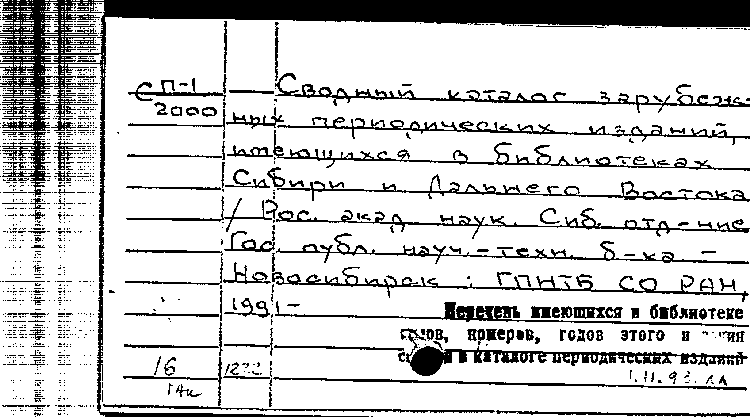 С П-1
2000
Сводный каталог зарубеж-
ных периодических изданий,
имеющихся в библиотеках
Сибири и Дальнего Востока
/ Рос. акад. наук. Сиб. отд-ние
Гос. публ. науч.-техн. б-ка –
Новосибирск : ГПНТБ СО РАН,
1991–
Перечень имеющихся в библиотеке
номеров, годов этого
в каталоге периодических изданий
16
1.11.93.